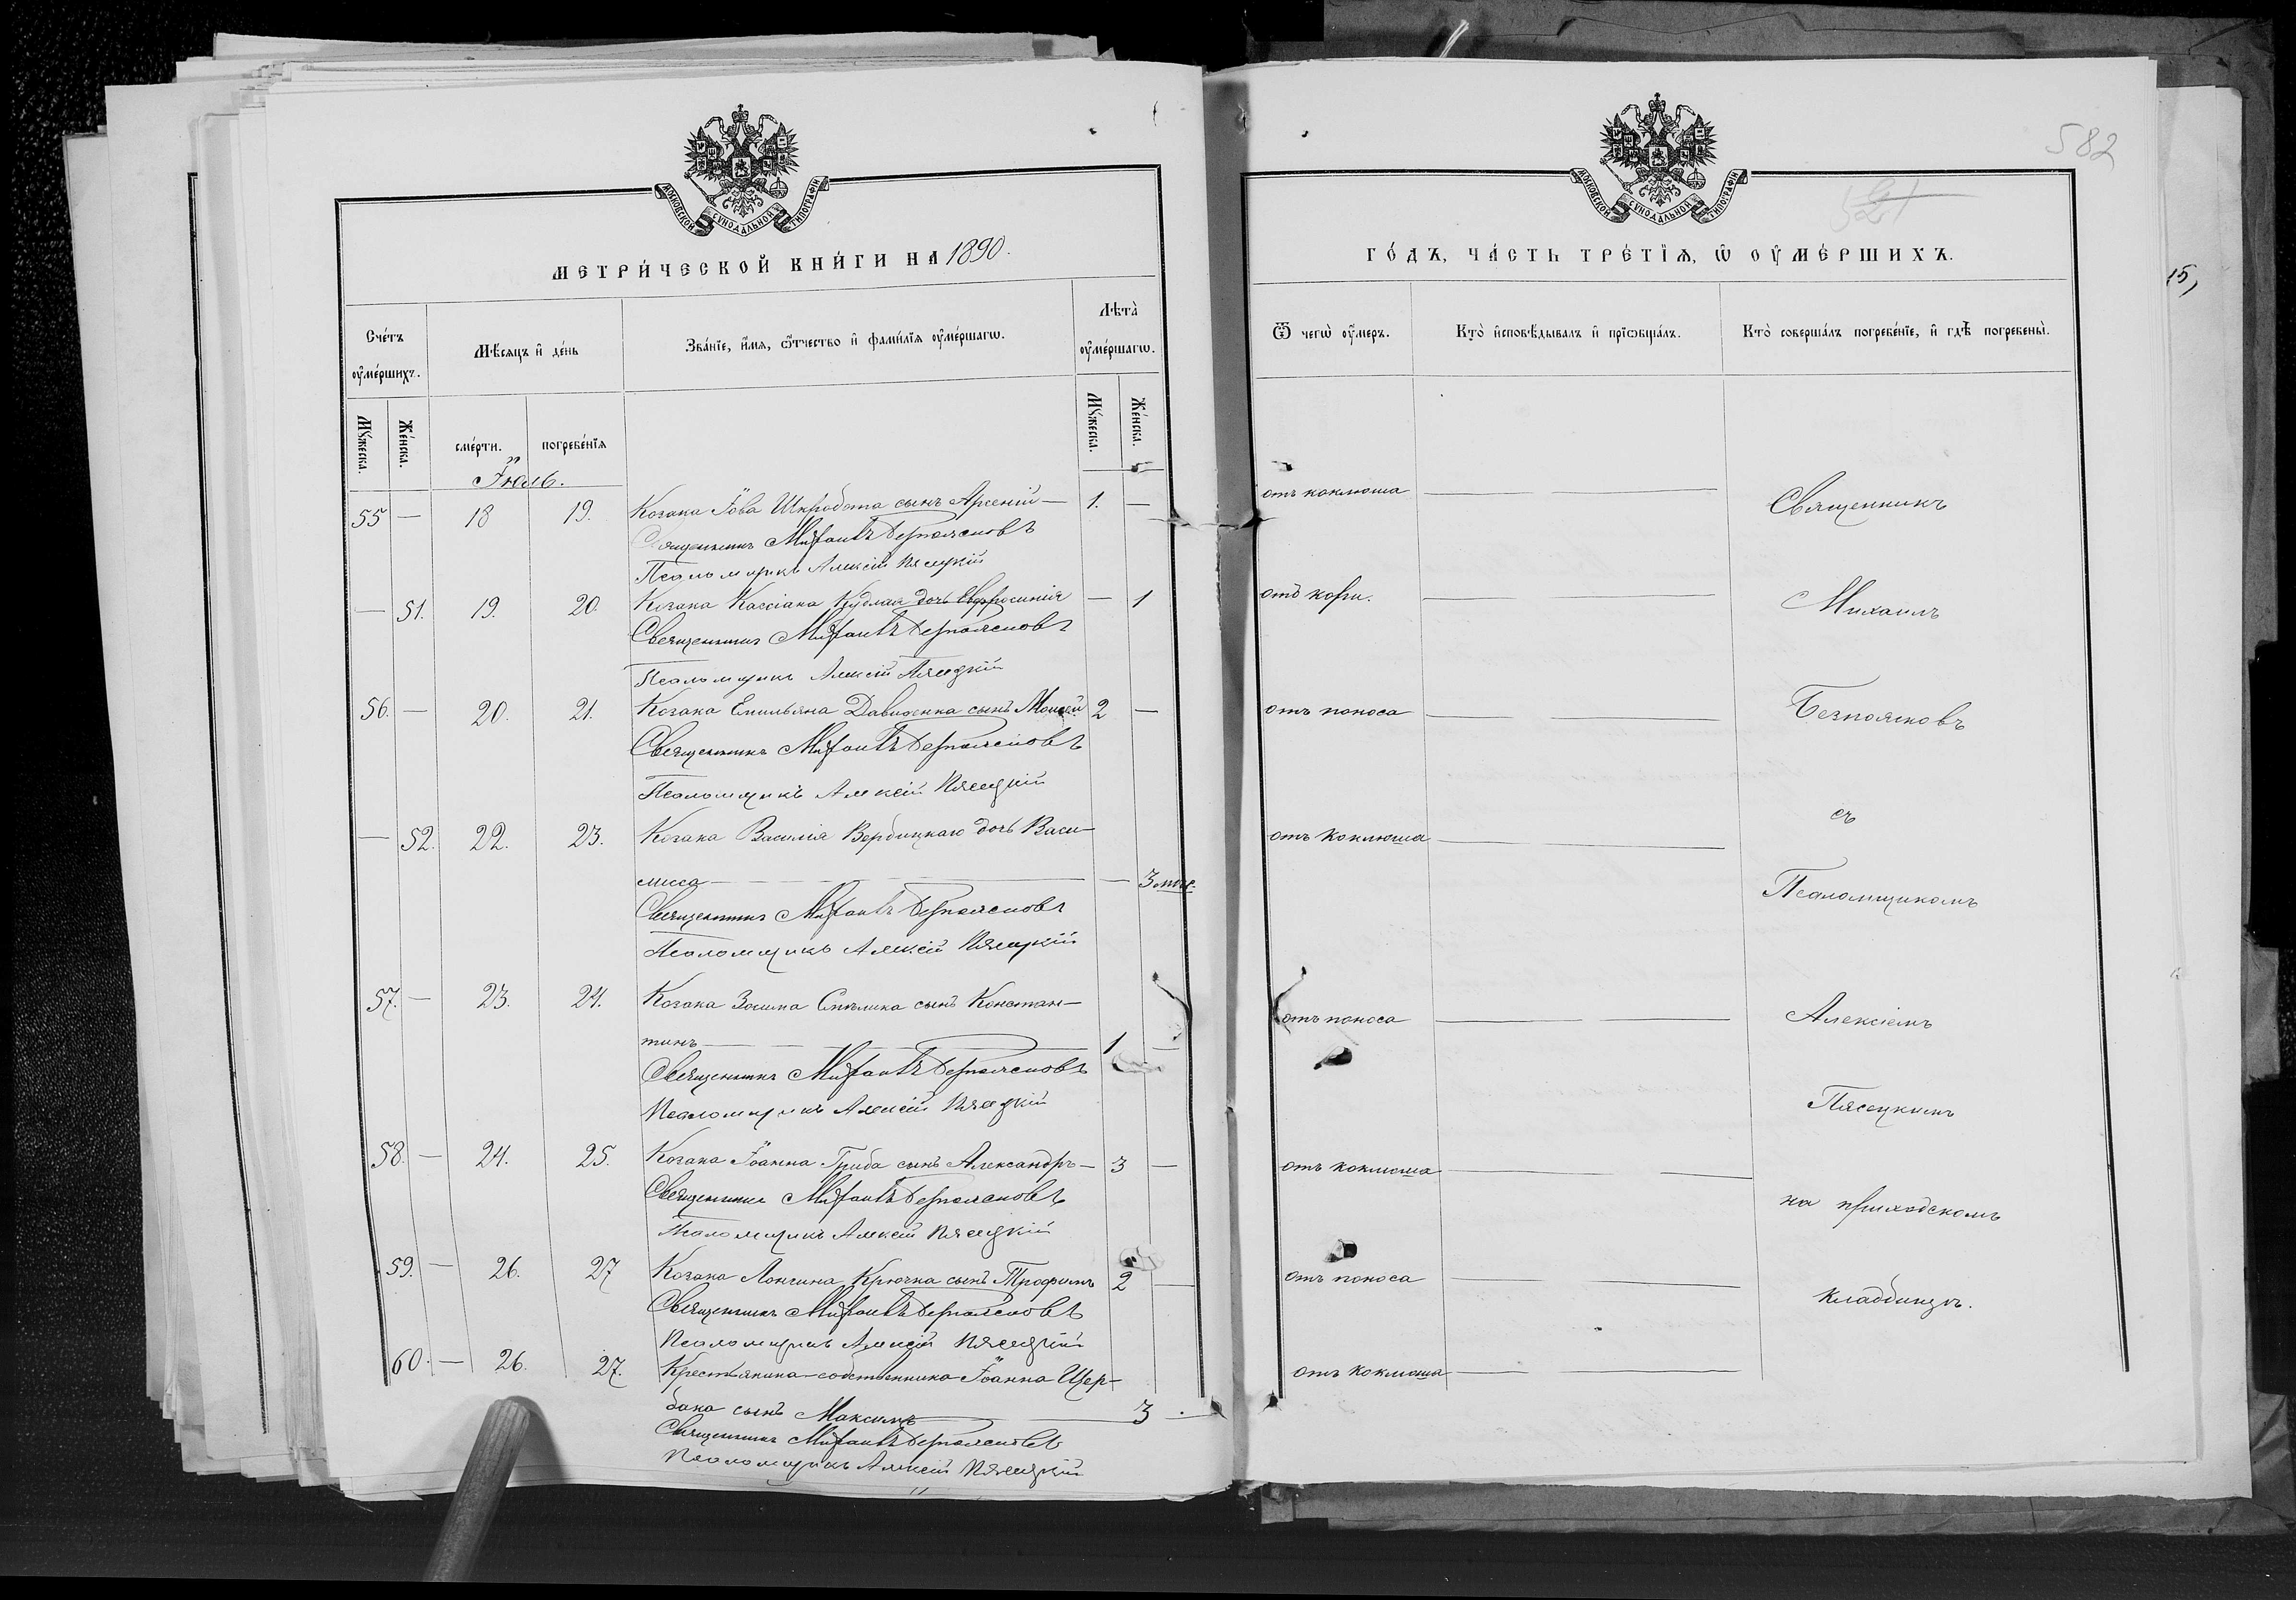 МОСКОВСКОЙ СѴНОДАЛЬНОЙ ТИПОГРАФІИ
МЕТРИ́ЧЕСКОЙ КНИ́ГИ НА 1890.
Сче́тъ ᲂу҆ме́ршихъ.
Мѣ́сѧцъ и҆ де́нь
Зва́нїе, и҆́мѧ, ѻ҆́тчество и҆ фами́лїѧ ᲂу҆ме́ршагѡ.
Лѣ̑та̀ ᲂу҆ме́ршагѡ.
Мꙋ́жеска.
Же́нска.
сме́рти.
погребе́нїѧ
Мꙋ́жеска.
Же́нска.
Іюль.
55 — 18 19. Козака Іова Шкробота сынъ Арсеній — 1. —
Священникъ Михаилъ Безпоясновъ
Псаломщикъ Алексій Пясецкій
— 51. 19. 20. Козака Кассіана Кублая дочь Евфросинія — 1
Священникъ Михаилъ Безпоясновъ
Псаломщикъ Алексій Пясецкій
56. — 20. 21. Козака Емильяна Давиденка сынъ Моисей 2 —
Священникъ Михаилъ Безпоясновъ
Псаломщикъ Алексій Пясецкій
— 52. 22. 23. Козака Василія Вербицкаго дочь Васи-
лисса — — 3 мѣс.
Священникъ Михаилъ Безпоясновъ
Псаломщикъ Алексій Пясецкій
57. — 23. 24. Козака Зосима Смѣлика сынъ Констан-
тинъ — 1 —
Священникъ Михаилъ Безпоясновъ
Псаломщикъ Алексій Пясецкій
58. — 24. 25. Козака Іоанна Гриба сынъ Александръ — 3 —
Священникъ Михаилъ Безпоясновъ
Псаломщикъ Алексій Пясецкій
59. — 26. 27 Козака Лонгина Крючка сынъ Трофимъ 2 —
Священникъ Михаилъ Безпоясновъ
Псаломщикъ Алексій Пясецкій
60. — 26. 27. Крестьянина-собственника Іоанна Щер-
бака сынъ Максимъ — 3 —
Священникъ Михаилъ Безпоясновъ
Псаломщикъ Алексій Пясецкій
582
521
МОСКОВСКОЙ СѴНОДАЛЬНОЙ ТИПОГРАФІИ
ГО́ДЪ, ЧА́СТЬ ТРЕ́ТЇѦ, Ѡ҆ ОУ҆МЕ́РШИХЪ.
Ѿ чегѡ̀ ᲂу҆́меръ.
Кто̀ и҆сповѣ́дывалъ и҆ прїѡбща́лъ.
Кто̀ соверша́лъ погребе́нїе, и҆ гдѣ̀ погребены̀.
отъ коклюша — —
Священникъ
отъ кори. — —
Михаилъ
отъ поноса — —
Безпоясновъ
съ
отъ коклюша — —
Псаломщикомъ
отъ поноса — —
Алексіемъ
Пясецкимъ
отъ коклюша — —
на приходскомъ
отъ поноса — —
кладбищѣ.
отъ коклюша — —
15,